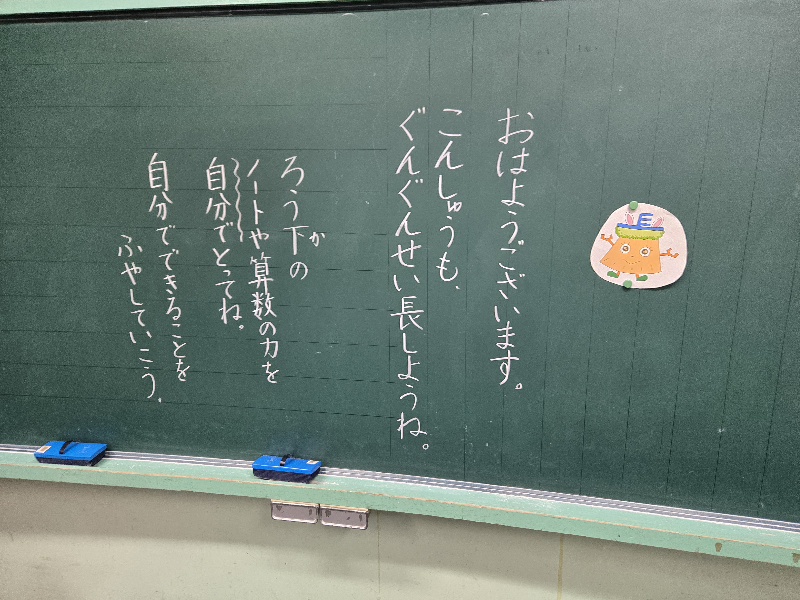 おはようございます。
こんしゅうも、
ぐんぐんせい長しようね。
ろう下の
か
ノートや算数の力を
自分でとってね。
自分でできることを
ふやしていこう。